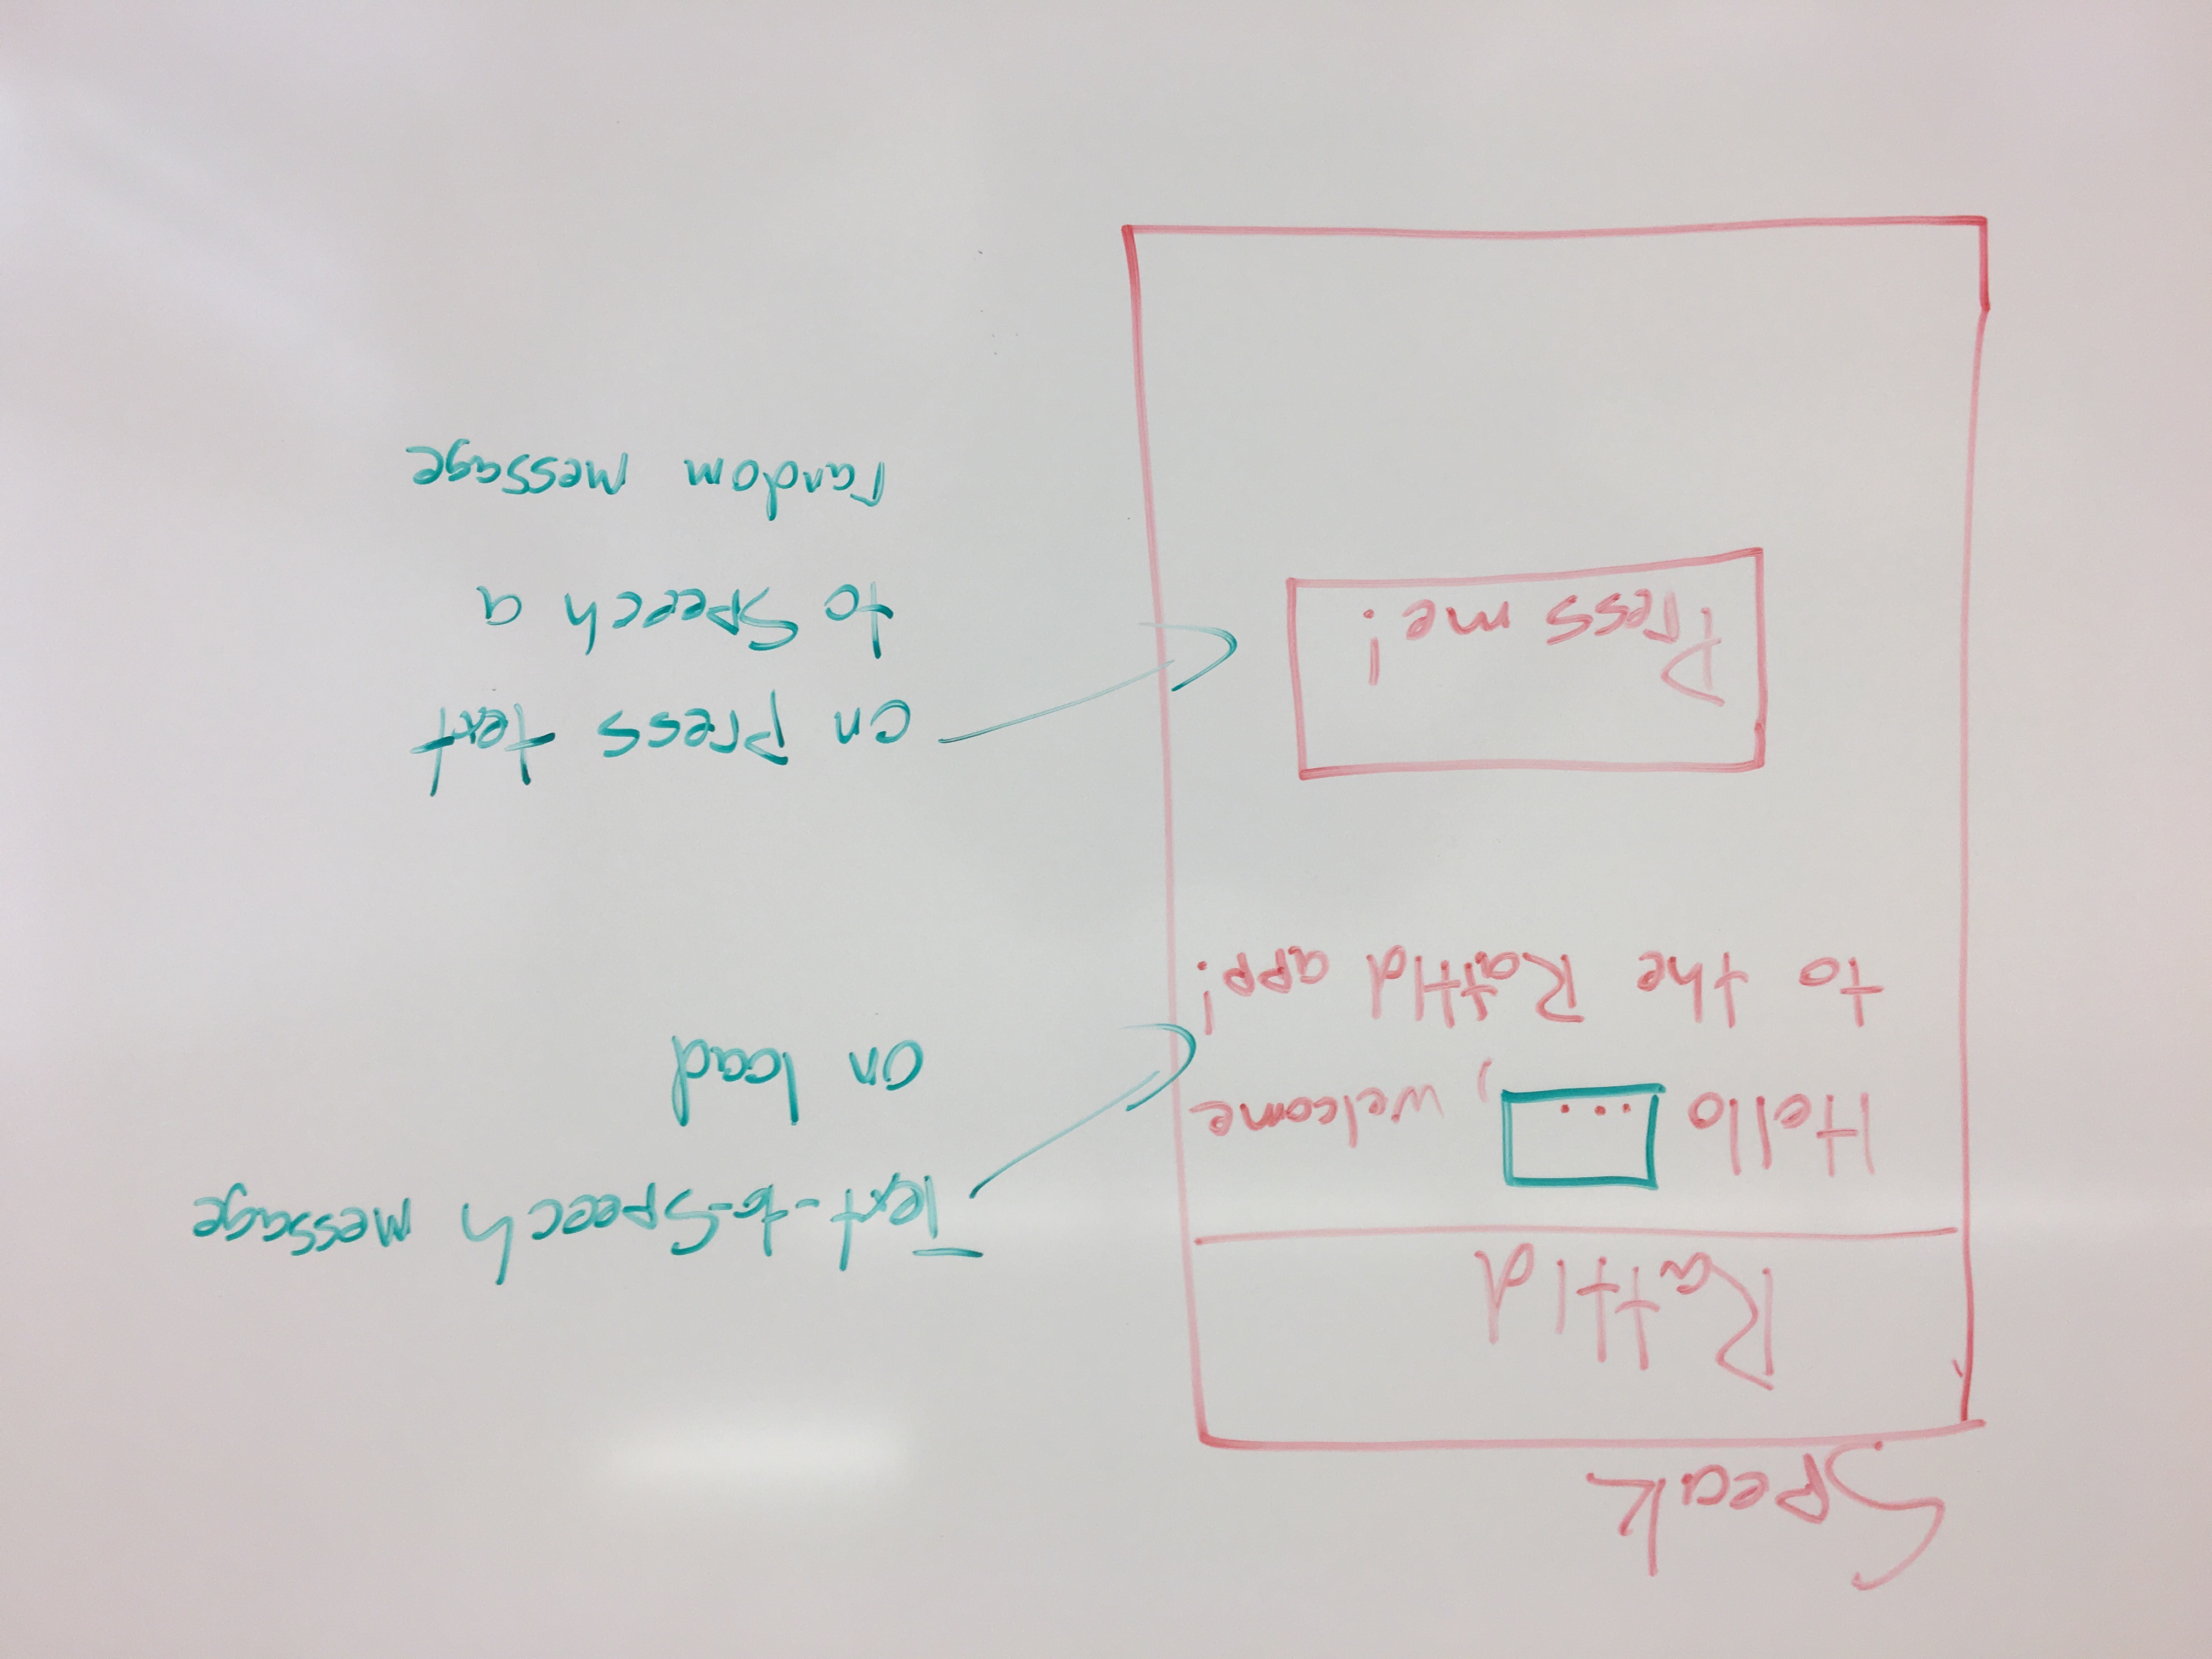 Speak
Rattld
Hello ..., welcome
to the Rattld app!
Press me!
Text-to-Speech message
on load
on press text
to Speech a
random message